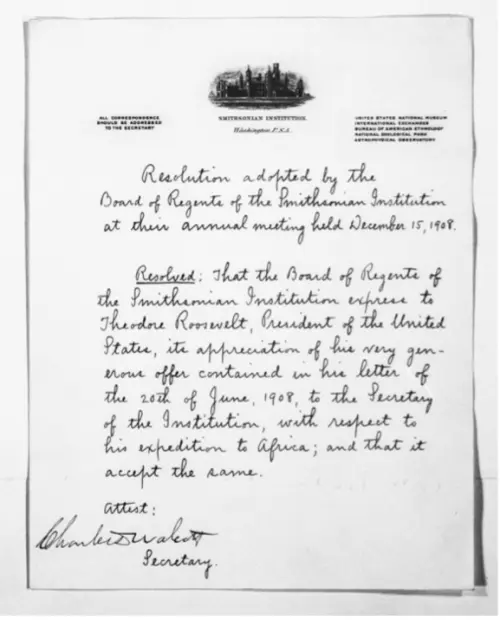 ALL CORRESPONDENCE
SHOULD BE ADDRESSED
TO THE SECRETARY
SMITHSONIAN INSTITUTION.
Washington, U.S.A.
UNITED STATES NATIONAL MUSEUM
INTERNATIONAL EXCHANGES
BUREAU OF AMERICAN ETHNOLOGY
NATIONAL ZOOLOGICAL PARK
ASTROPHYSICAL OBSERVATORY
Resolution adopted by the
Board of Regents of the Smithsonian Institution
at their annual meeting held December 15, 1908.
Resolved: That the Board of Regents of
the Smithsonian Institution express to
Theodore Roosevelt, President of the United
States, its appreciation of his very gen-
erous offer contained in his letter of
the 20th of June, 1908, to the Secretary
of the Institution, with respect to
his expedition to Africa; and that it
accept the same.
Attest:
Charles D Walcott
Secretary.